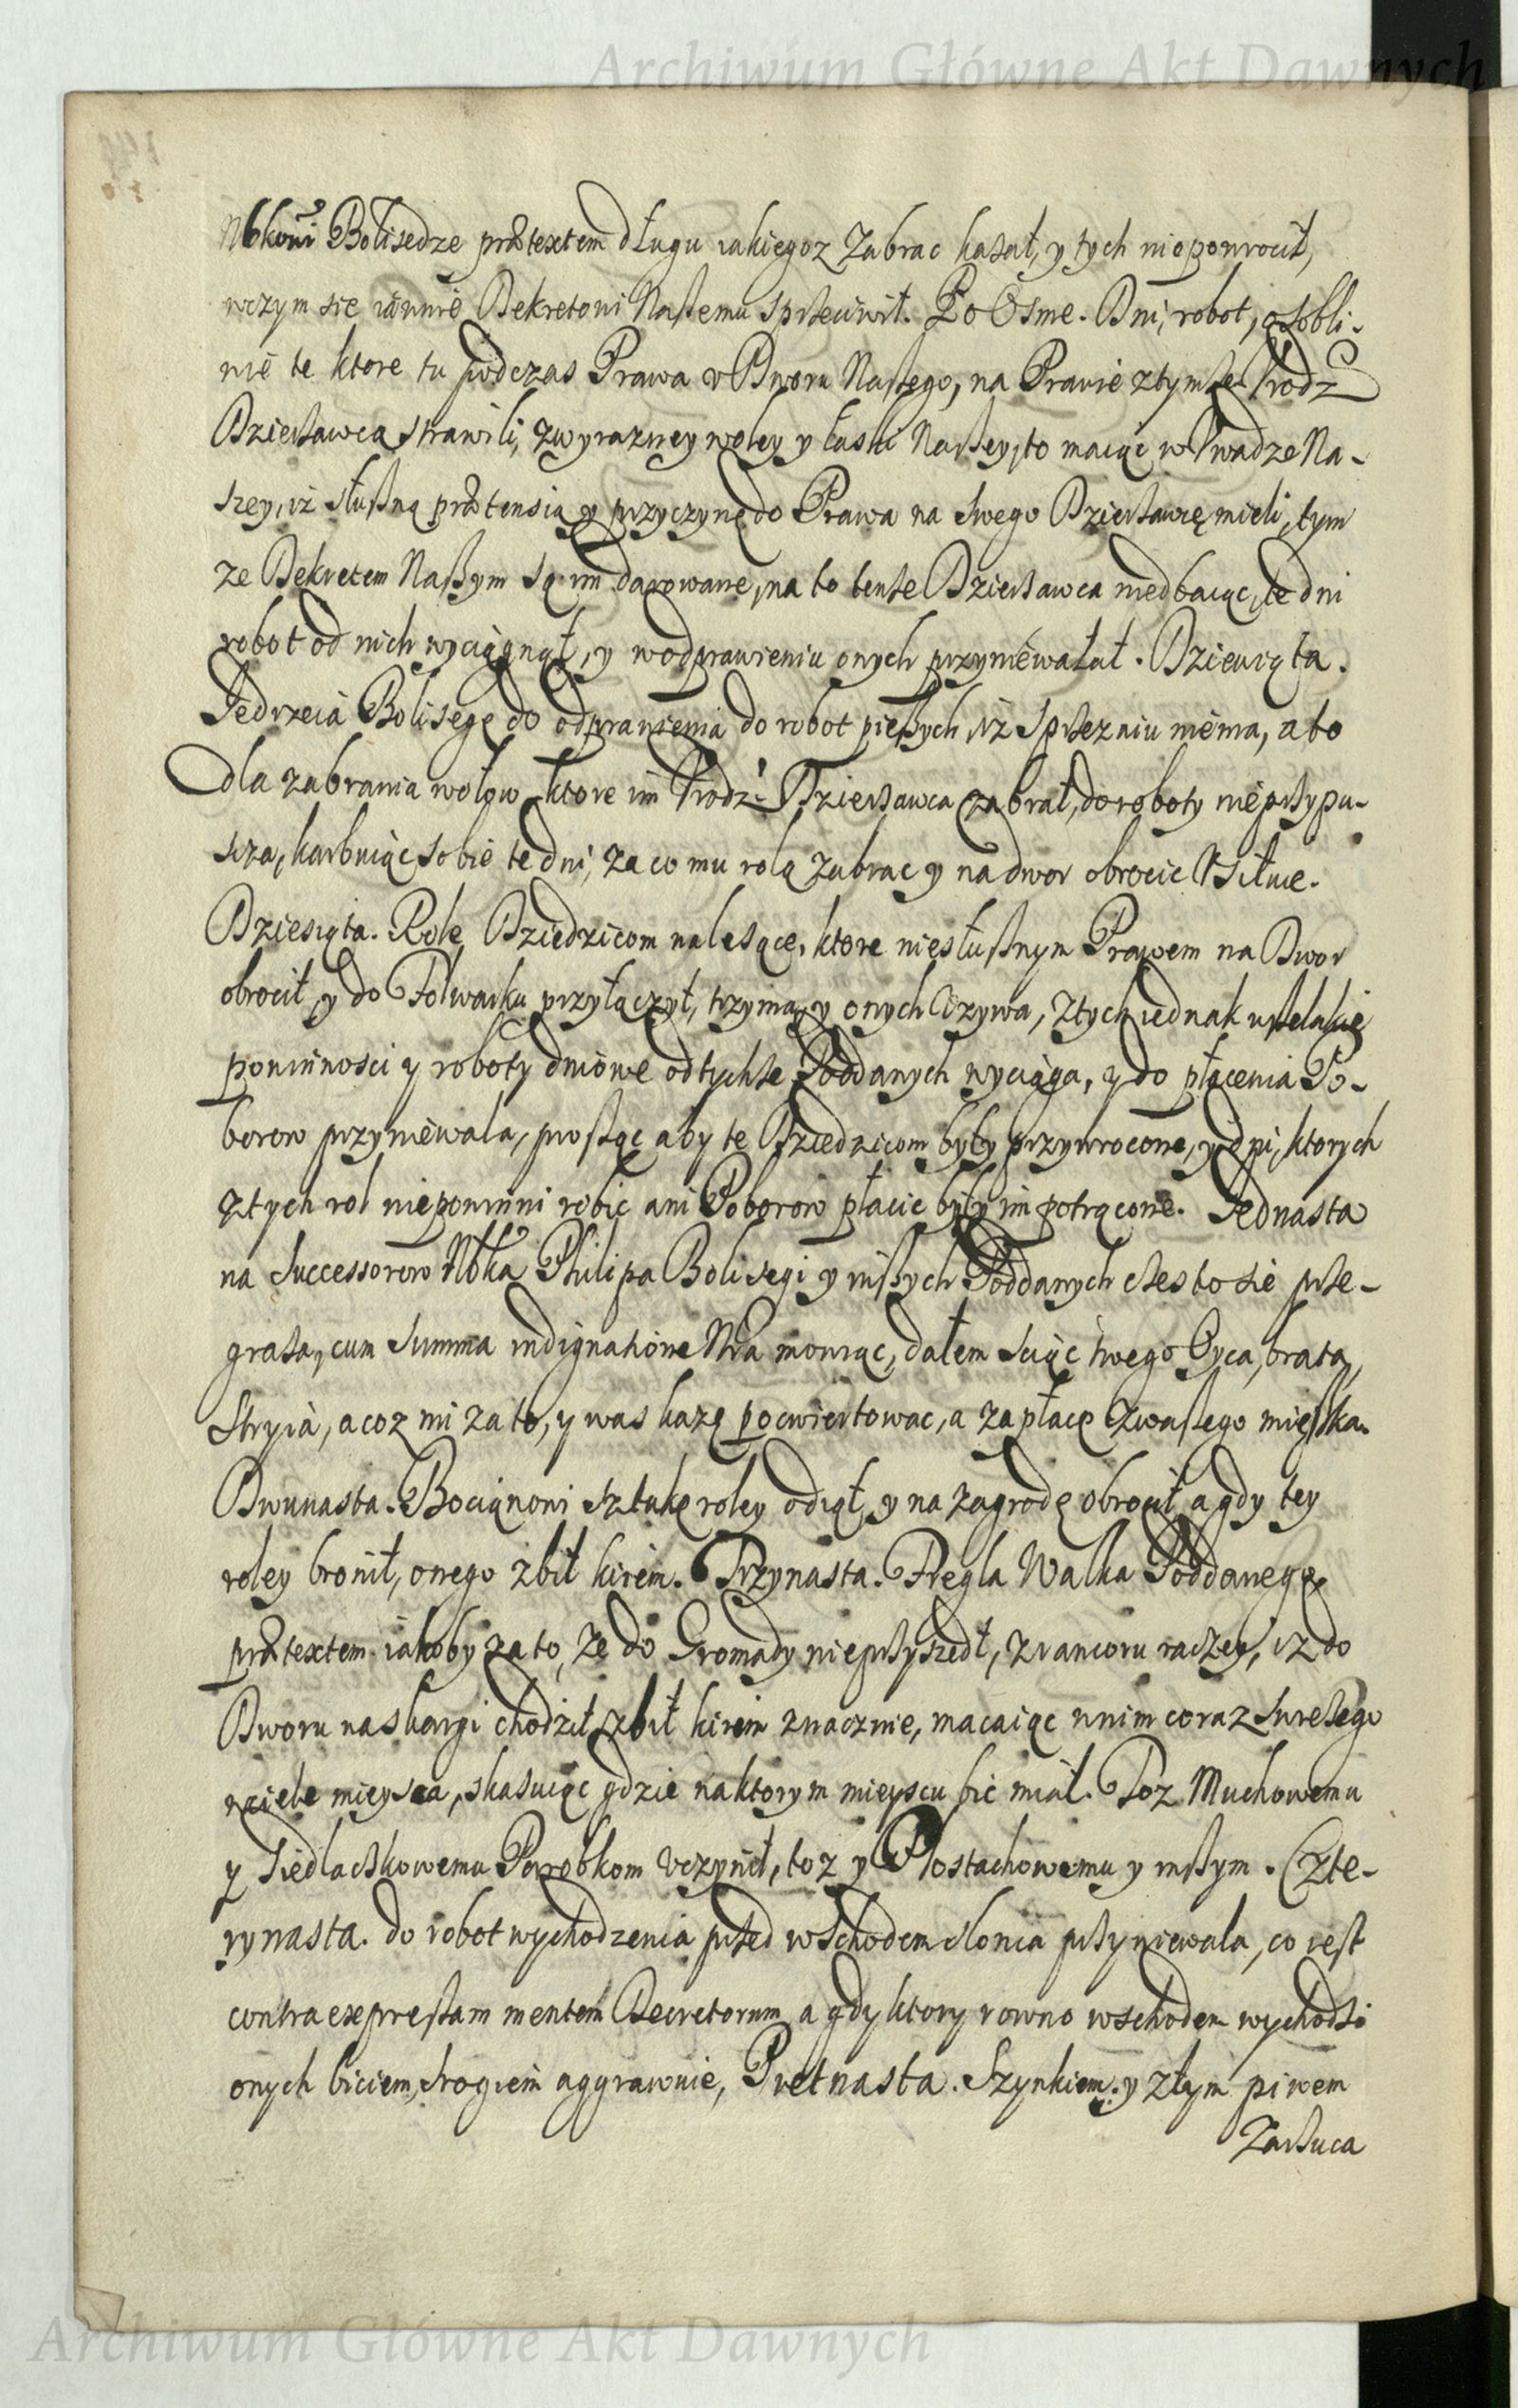 Archiwum Główne Akt Dawnych
Nbkowi Bolisedze prætextem długu iakiegoz Zabrac kasał, y tych niepowrocił,
wczym sie iawnie Dekretowi Naßemu sprzeciwił. Po Osme. Dni, robot, osobli-
wie te ktore tu podczas Prawa v Dworu Naßego, na Prawie ztymże Vrodz
Dzierżawcą strawili, zwyrazney woley y łaski Naßey, to maiąc w Vwadze Na-
szey, iż słußną prætensią y przyczynę do Prawa na swego Dzierżawcę mieli, tym
ze Dekretem Naßym są im darowane, na to tenże Dzierżawca niedbaiąc, te dni
robot od nich wyciągnął, y wodprawieniu onych przyniewalał. Dziewiąta.
Jedrzeia Bolisegę do odprawienia do robot pießych, iż sprzezaiu niema, a to
dla zabrania wołow, ktore im Vrodz: Dzierżawca zabrał, do roboty nieprzypu-
scza, karbuiąc sobie te dni, za co mu rolą zabrac y na dwor obrocic Vsiłuie.
Dziesiąta. Role Dziedzicom należące, ktore niesłußnym Prawem na Dwor
obrocił, y do Folwarku przyłączył, trzyma, y onych Vzywa, ztych iednak wßelakie
powinnosci y roboty dniowe od tychże Poddanych wyciąga, y do płacenia Po-
borow przyniewala, proßąc aby te Dziedzicom były przywrocone, y dni, ktorych
ztych rol niepowinni robic ani Poborow płacic były im potrącone. Jednasta
na Successorow Nbka Philipa Bolisegi y inßych Poddanych częstosie prze-
graża, cum summa indignatione Nra mowiąc, dałem sciąc twego Oyca, brata,
Stryia, a coz mi za to, y was każę pocwiertowac, a zapłacę zwaßego mießka.
Dwunasta. Bocianowi sztukę roley odiął, y na zagrodę obrocił, a gdy tey
roley bronił, onego zbił kiiem. Trzynasta. Fregla Walka Poddanego
prætextem iakoby za to, że do Gromady nieprzyszedł, zrancoru raczey, iz do
Dworu naskargi chodził, zbił kiiem znacznie, macaiąc wnim coraz swieżego
wciele mieysca, skasuiąc gdzie naktorym mieyscu bic miał. Toz Muchowemu
y Siedlaczkowemu Parobkom vczynił, toz y Płostachowemu y inßym. Czte-
rynasta. do robot wychodzenia przed wschodem slonca przyniewala, co iest
contra expreßam mentem Decretorum, a gdy ktory rowno wschodem wychodzi
onych biciem srogiem aggrawuie, Pietnasta. Szynkiem y złym piwem
Zarzuca
Archiwum Główne Akt Dawnych